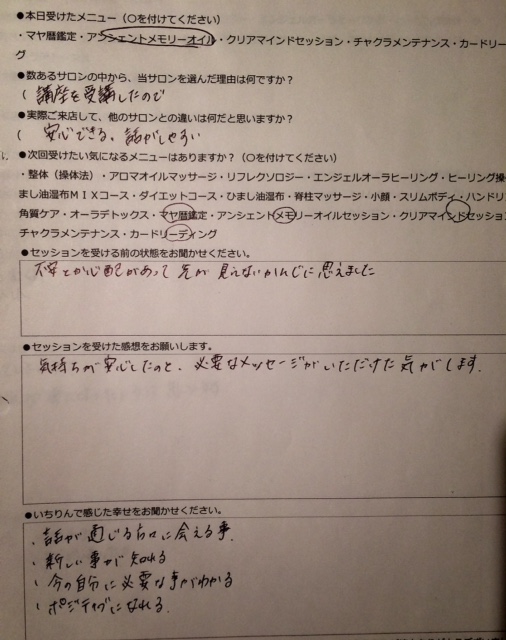 ●本日受けたメニュー（○を付けてください）
・マヤ暦鑑定・アンシェントメモリーオイル・クリアマインドセッション・チャクラメンテナンス・カードリー
グ
●数あるサロンの中から、当サロンを選んだ理由は何ですか？
( 講座を受講したので
●実際ご来店して、他のサロンとの違いは何だと思いますか？
( 安心できる、話がしやすい
●次回受けたい気になるメニューはありますか？（○を付けてください）
・整体（操体法）・アロマオイルマッサージ・リフレクソロジー・エンジェルオーラヒーリング・ヒーリング操
まし油湿布ＭＩＸコース・ダイエットコース・ひまし油湿布・脊柱マッサージ・小顔・スリムボディ・ハンドリ
角質ケア・オーラデトックス・マヤ暦鑑定・アンシェントメモリーオイルセッション・クリアマインドセッション
チャクラメンテナンス・カードリーディング
●セッションを受ける前の状態をお聞かせください。
不安とか心配があって先が見えないかんじに思えました
●セッションを受けた感想をお願いします。
気持ちが安心したのと、必要なメッセージがいただけた気がします。
●いちりんで感じた幸せをお聞かせください。
・話が通じる方々に会える事
・新しい事が知れる
・今の自分に必要な事がわかる
・ポジティブになれる